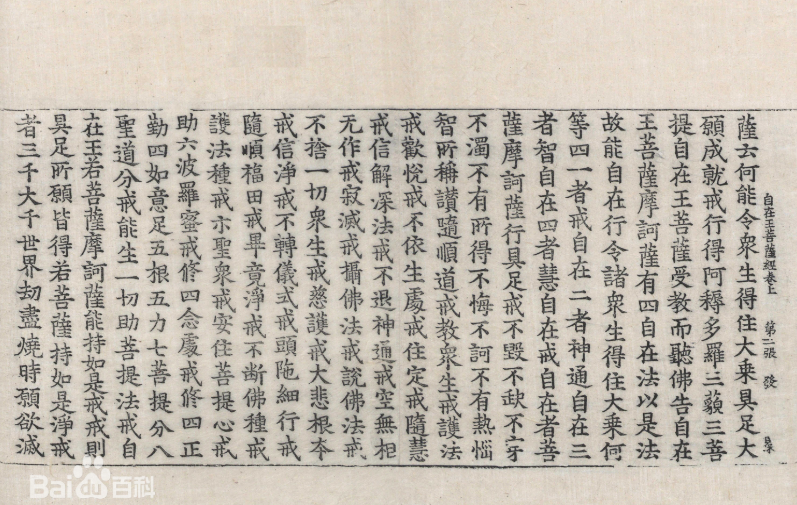 自在王菩薩經卷上　第二張　發
薩云何能令衆生得住大乗具足大
願成就戒行得阿耨多羅三藐三菩
提自在王菩薩受教而聽佛告自在
王菩薩摩訶薩有四自在法以是法
故能自在行令諸衆生得住大乗何
等四一者戒自在二者神通自在三
者智自在四者慧自在戒自在者菩
薩摩訶薩行具足戒不毀不缺不穿
不濁不有所得不悔不訶不有熱惱
智所稱讃隨順道戒教衆生戒護法
戒歡悅戒不依生處戒住定戒隨慧
戒信解深法戒不退神通戒空無相
无作戒寂滅戒攝佛法戒說佛法戒
不捨一切衆生戒慈護戒大悲根本
戒信淨戒不轉儀式戒頭陁細行戒
隨順福田戒畢竟淨戒不斷佛種戒
護法種戒示聖衆戒安住菩提心戒
助六波羅蜜戒修四念處戒修四正
勤四如意足五根五力七菩提分八
聖道分戒能生一切助菩提法戒自
在王若菩薩摩訶薩能持如是戒戒則
具足所願皆得若菩薩持如是淨戒
者三千大千世界劫盡燒時願欲滅
Baidu百科